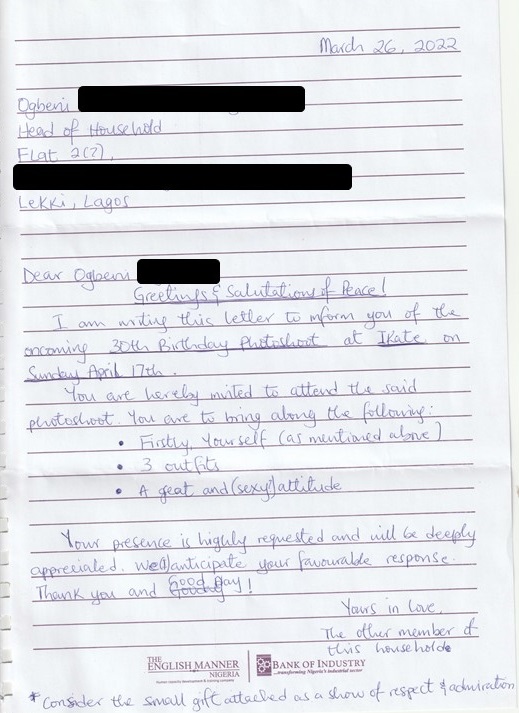 March 26, 2022
Ogbeni
Head of Household
Flat 2(?),
Lekki, Lagos
Dear Ogbeni
Greetings & Salutations of Peace!
I am writing this letter to inform you of the
oncoming 30th Birthday Photoshoot at Ikate on
Sunday April 17th.
You are hereby invited to attend the said
photoshoot. You are to bring along the following:
• Firstly, Yourself (as mentioned above)
• 3 outfits
• A great and (sexy) attitude
Your presence is highly requested and will be deeply
appreciated. We(I) anticipate your favourable response.
Thank you and Good Day!
Yours in love,
The other member of
this household
THE ENGLISH MANNER NIGERIA
BANK OF INDUSTRY
...transforming Nigeria's industrial sector
* Consider the small gift attached as a show of respect & admiration